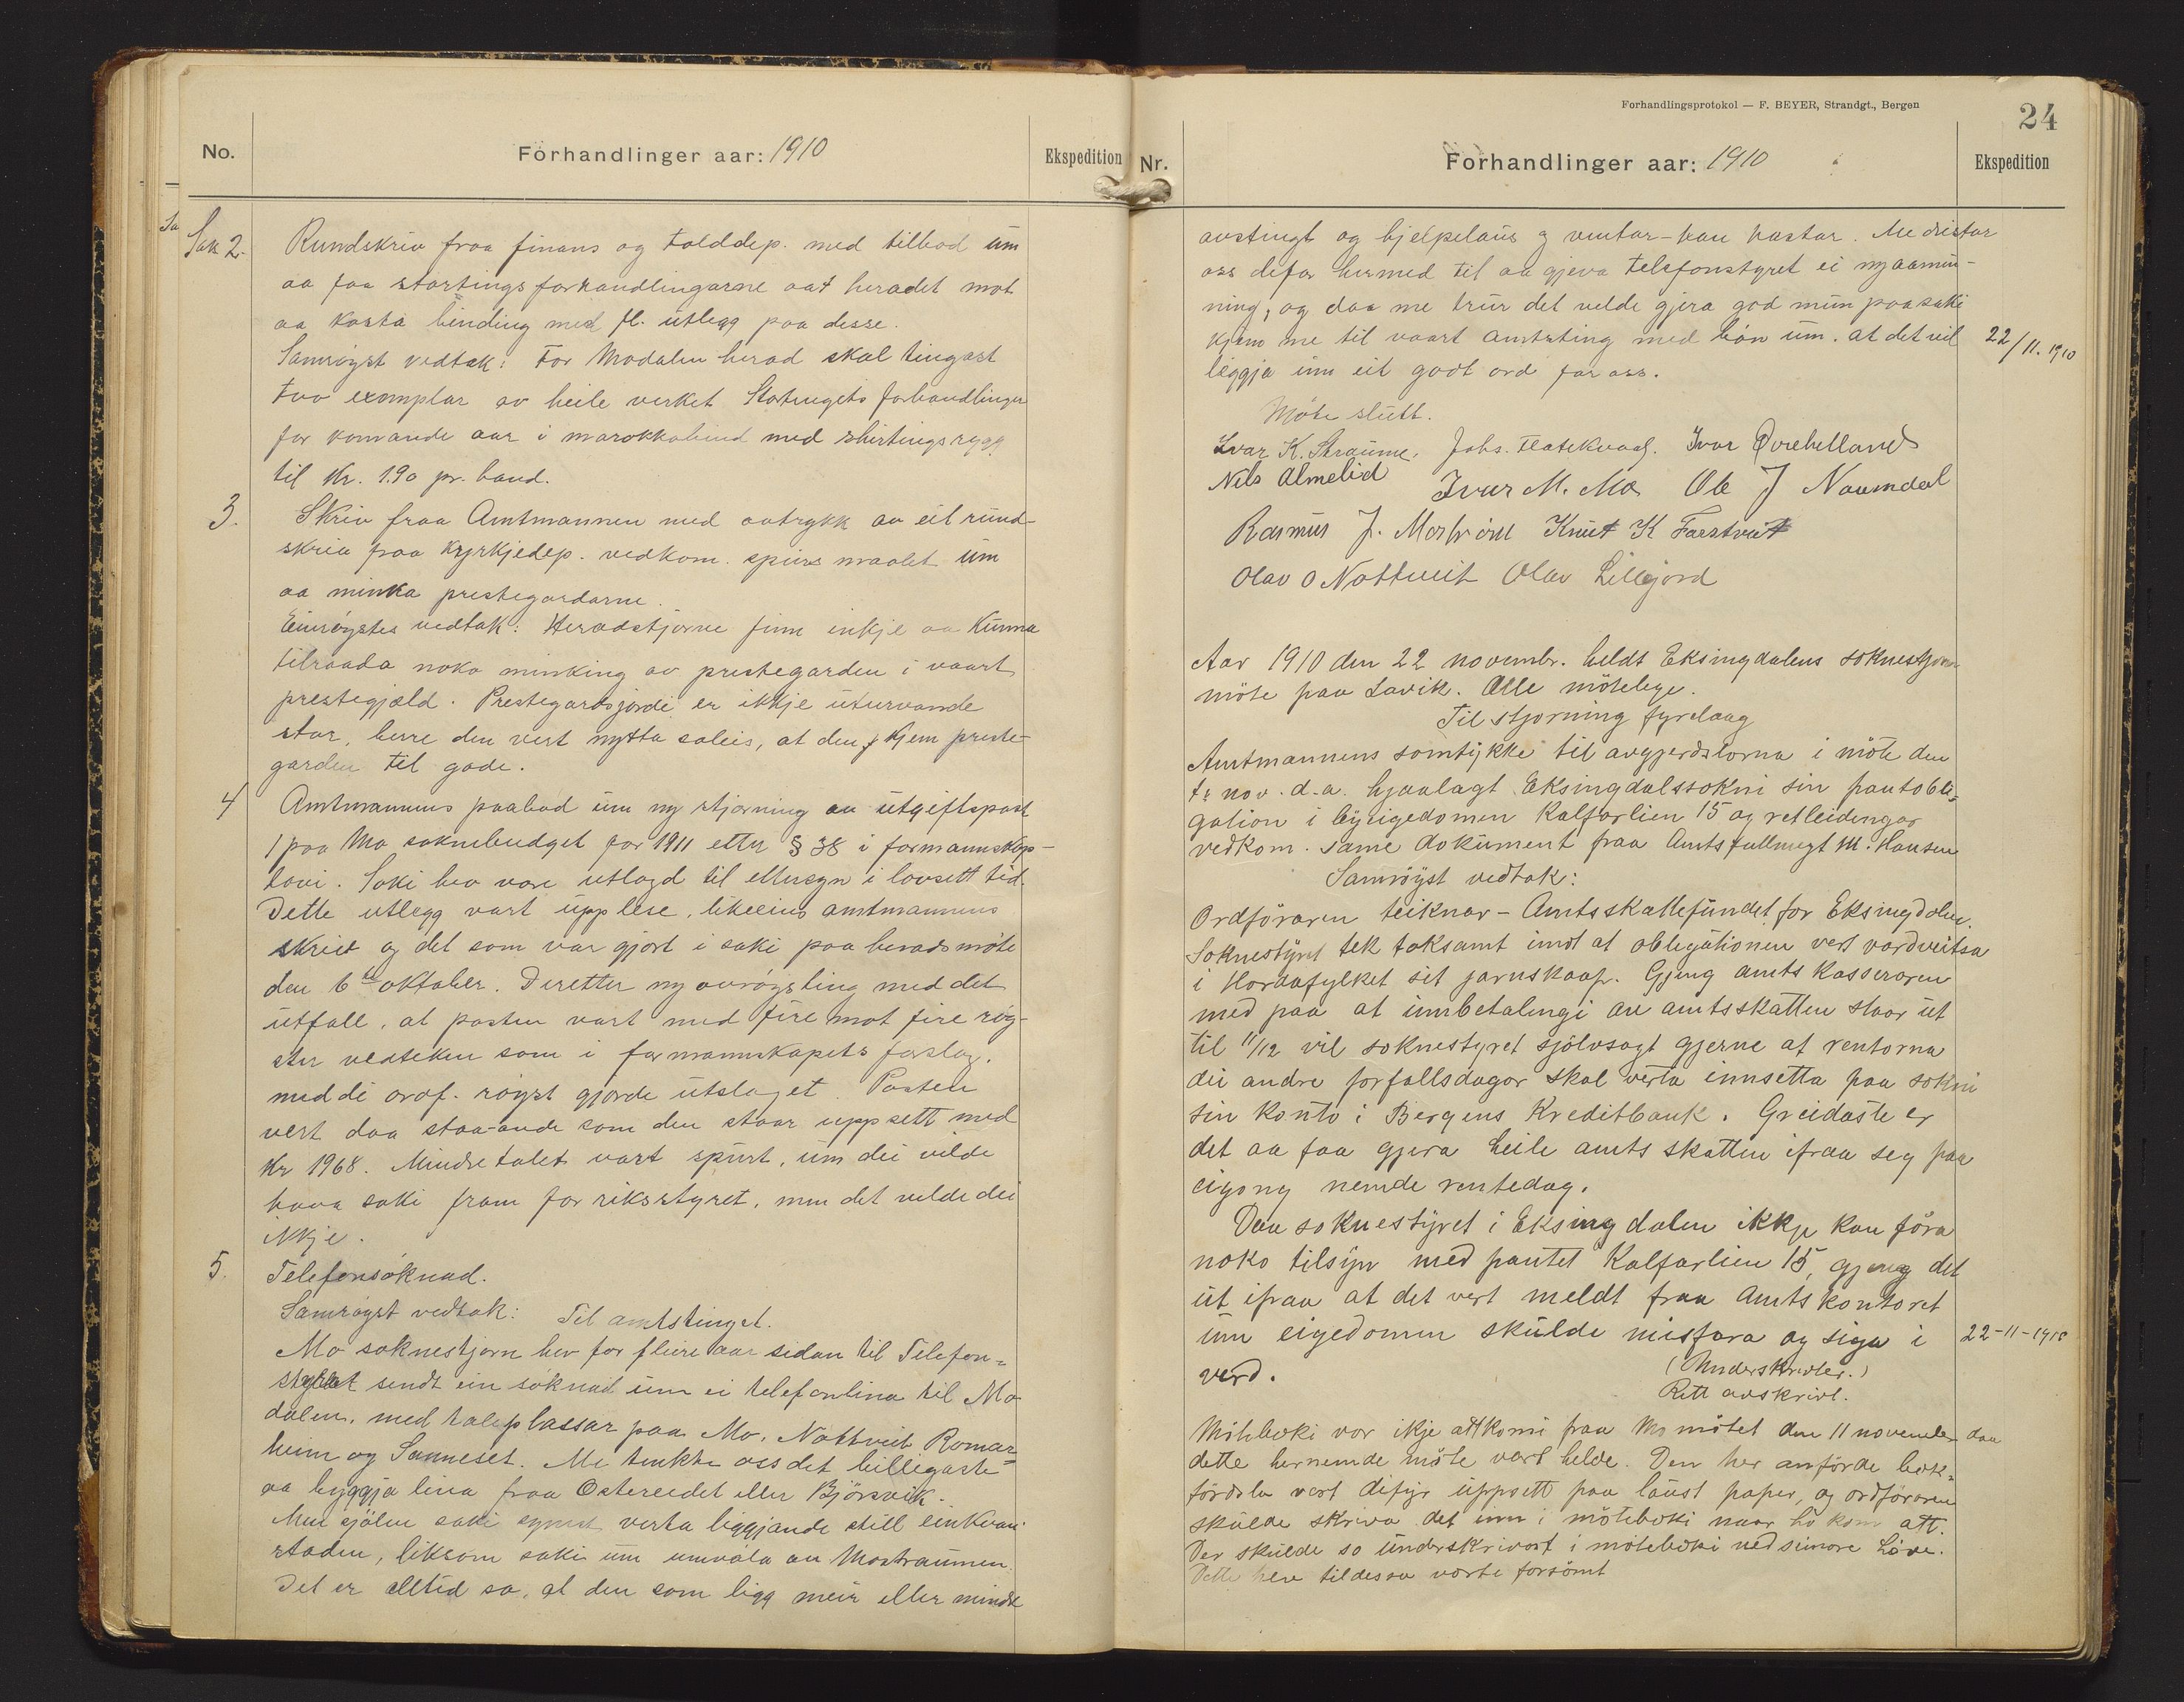 No.
Forhandlinger aar: 1910
Ekspedition
Sak 2.
Rundskriv fraa finans og tolddep. med tilbod um
aa faa stortingsforhandlingarne aat heradet mot
aa kosta binding med fl. utlegg paa desse.
Samrøyst vedtak: For Modalen herad skal tingast
tvo exemplar av heile verket Stortingets forhandlinger
for komande aar i marokkobind med shirtingsrygg
til Kr. 1.90 pr. band.
3.
Skriv fraa Amtmannen med avtrykk av eit rund-
skriv fraa Kyrkjedep. vedkom. spursmaalet um
aa minka prestegardarne.
Einrøystes vedtak: Heradstjorne finn inkje aa kunna
tilraada noko minking av prestegarden i vaart
prestegjæld. Prestegardsjordi er ikkje uturvande
stor, berre den vert nytta soleis, at den kjem preste-
garden til gode.
4
Amtmannens paabod um ny stjorning av utgiftspost
1 paa Mo soknebudget for 1911 etter § 38 i formannskaps-
lovi. Saki hev vore utlagd til ettersyn i lovsett tid.
Dette utlegg vart upplese, likeeins amtmannens
skriv og det som var gjort i saki paa heradsmöte
den 6te oktober. Deretter ny avröysting med det
utfall, at posten vart med fire mot fire röy-
ster vedteken som i formannskapets forslag.
med di ordf. röyst gjorde utslaget. Posten
vert daa staa-ande som den staar uppsett med
Kr 1968. Mindretalet vart spurt, um dei vilde
hava saki fram for riksstyret, men det vilde dei
ikkje.
5.
Telefonsöknad.
Samröyst vedtak: Til amtstinget.
Mo soknestjorn hev for fleire aar sidan til Telefon=
styret sendt ein söknad um ei telefonlina til Mo-
dalen, med taleplassar paa Mo, Nottveit Romar=
heim og Sanneset. Me tenkte oss det billigaste
aa byggja lina fraa Ostereidet eller Bjørsvik.
Men sjölve saki synest verta liggjande still einkvan
staden, liksom saki um umvöla av Mostraumen.
Det er alltid so, at den som ligg meir eller mindre
Forhandlingsprotokol — F. BEYER, Strandgt., Bergen
24
Nr.
Forhandlinger aar: 1910
Ekspedition
avstengt og hjelpelaus og ventar – kan hastar. Me dristar
oss difor hermed til aa gjeva telefonstyret ei nyaamin-
ning, og daa me trur det vilde gjera god mun paa saki
kjem me til vaart amtsting med bön um, at det vil
22/11. 1910
leggja inn eit godt ord for oss.
Möte slutt.
Ivar K. Straume. Johs. Flatekvaal. Ivar Øvrehelland
Nils Almelid Ivar M. Mo Ole J Naumdal
Rasmus J. Mostraum Knut K Farstveit
Olav O Nottveit Olav Lillejord
Aar 1910 den 22 novembr. heldt Eksingdalens soknestjorn
möte paa Lavik. Alle mötelege.
Til stjorning fyrelaag
Amtmannens samtykke til avgjerdslorna i möte den
1e nov. d.a. hjaalagt Eksingdalssokni sin pantobli=
gation i byeigedomen Kalfarlien 15 og retleidingar
vedkom. same dokument fraa Amtsfullmegt M. Hansen
Samröyst vedtak:
Ordföraren teiknar – Amtsskattefundet for Eksingdalen.
Soknestyret tek taksamt imot at obligationen vert vardveitsa
i Hordafylket sit jarnskaap. Gjeng amtskasseraren
med paa at innbetalingi av amtsskatten staar ut
til 11/12 vil soknestyret sjölvsagt gjerne at rentorna
dei andre forfallsdagar skal verta innsetta paa sokni
sin konto i Bergens Kreditbank. Greidaste er
det aa faa gjera heile amtsskatten ifraa seg paa
eigong nemde rentedag.
Daa soknestyret i Eksingdalen ikkje kan föra
noko tilsyn med pantet Kalfarlien 15, gjeng det
ut ifraa at det vert meldt fraa Amtskontoret
um eigedomen skulde misfara og siga i
22-11-1910
verd.
(Underskrivter.)
Rett avskrivt.
Möteboki var ikje attkomi fraa Mo mötet den 11 november daa
dette hernemde möte vart helde. Den her anförde bok=
fördsla vart difyr uppsett paa laust papir, og ordföraren
skulde skriva det inn i möteboki naar ho kom att.
Den skulde so underskrivast i möteboki ved seinare höve.
Dette hev tildessa vorte forsömt